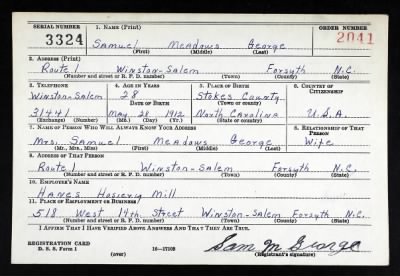 SERIAL NUMBER 1. NAME (Print) ORDER NUMBER
3324 Samuel Meadows George 2041
(First) (Middle) (Last)
2. ADDRESS (Print)
Route 1 Winston-Salem Forsyth N.C.
(Number and street or R. F. D. number) (Town) (County) (State)
3. TELEPHONE 4. AGE IN YEARS 5. PLACE OF BIRTH 6. COUNTRY OF CITIZENSHIP
Winston-Salem 28 Stokes County
DATE OF BIRTH (Town or county)
31441 May 28 1912 North Carolina U.S.A.
(Exchange) (Number) (Mo.) (Day) (Yr.) (State or country)
7. NAME OF PERSON WHO WILL ALWAYS KNOW YOUR ADDRESS 8. RELATIONSHIP OF THAT PERSON
Mrs. Samuel Meadows George Wife
(Mr., Mrs., Miss) (First) (Middle) (Last)
9. ADDRESS OF THAT PERSON
Route 1 Winston-Salem Forsyth N.C.
(Number and street or R. F. D. number) (Town) (County) (State)
10. EMPLOYER'S NAME
Hanes Hosiery Mill
11. PLACE OF EMPLOYMENT OR BUSINESS
518 West 14th Street Winston-Salem Forsyth N.C.
(Number and street or R. F. D. number) (Town) (County) (State)
I AFFIRM THAT I HAVE VERIFIED ABOVE ANSWERS AND THAT THEY ARE TRUE.
REGISTRATION CARD
D. S. S. Form 1 16—17105 Sam M George
(over) (Registrant's signature)